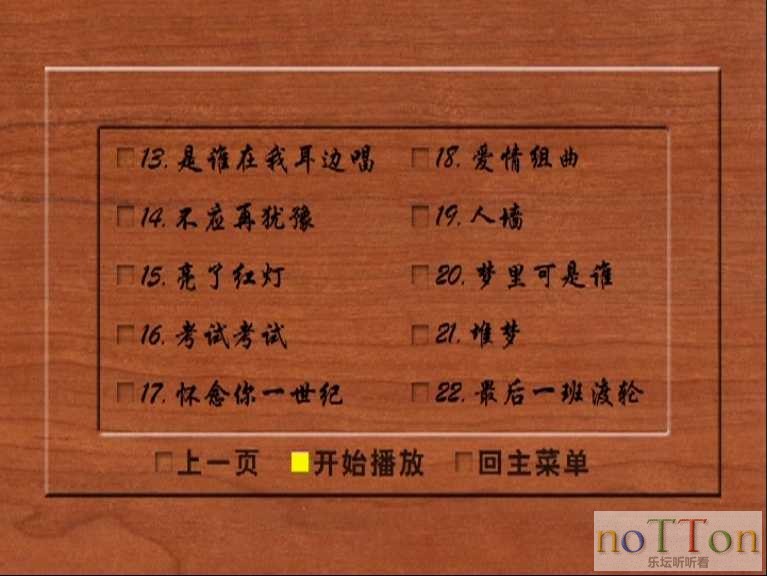 13. 是谁在我耳边唱
14. 不应再犹豫
15. 亮了红灯
16. 考试考试
17. 怀念你一世纪
18. 爱情组曲
19. 人墙
20. 梦里可是谁
21. 堆梦
22. 最后一班渡轮
上一页 开始播放 回主菜单
noTTon
乐坛听听看